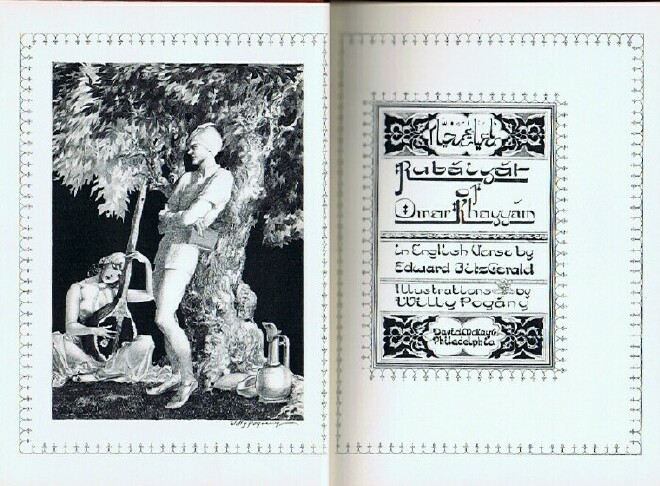 Willy Pogány
Rubáiyát
of
Omar Khayyám
in English Verse by
Edward FitzGerald
Illustrations by
Willy Pogány
David McKay
Philadelphia